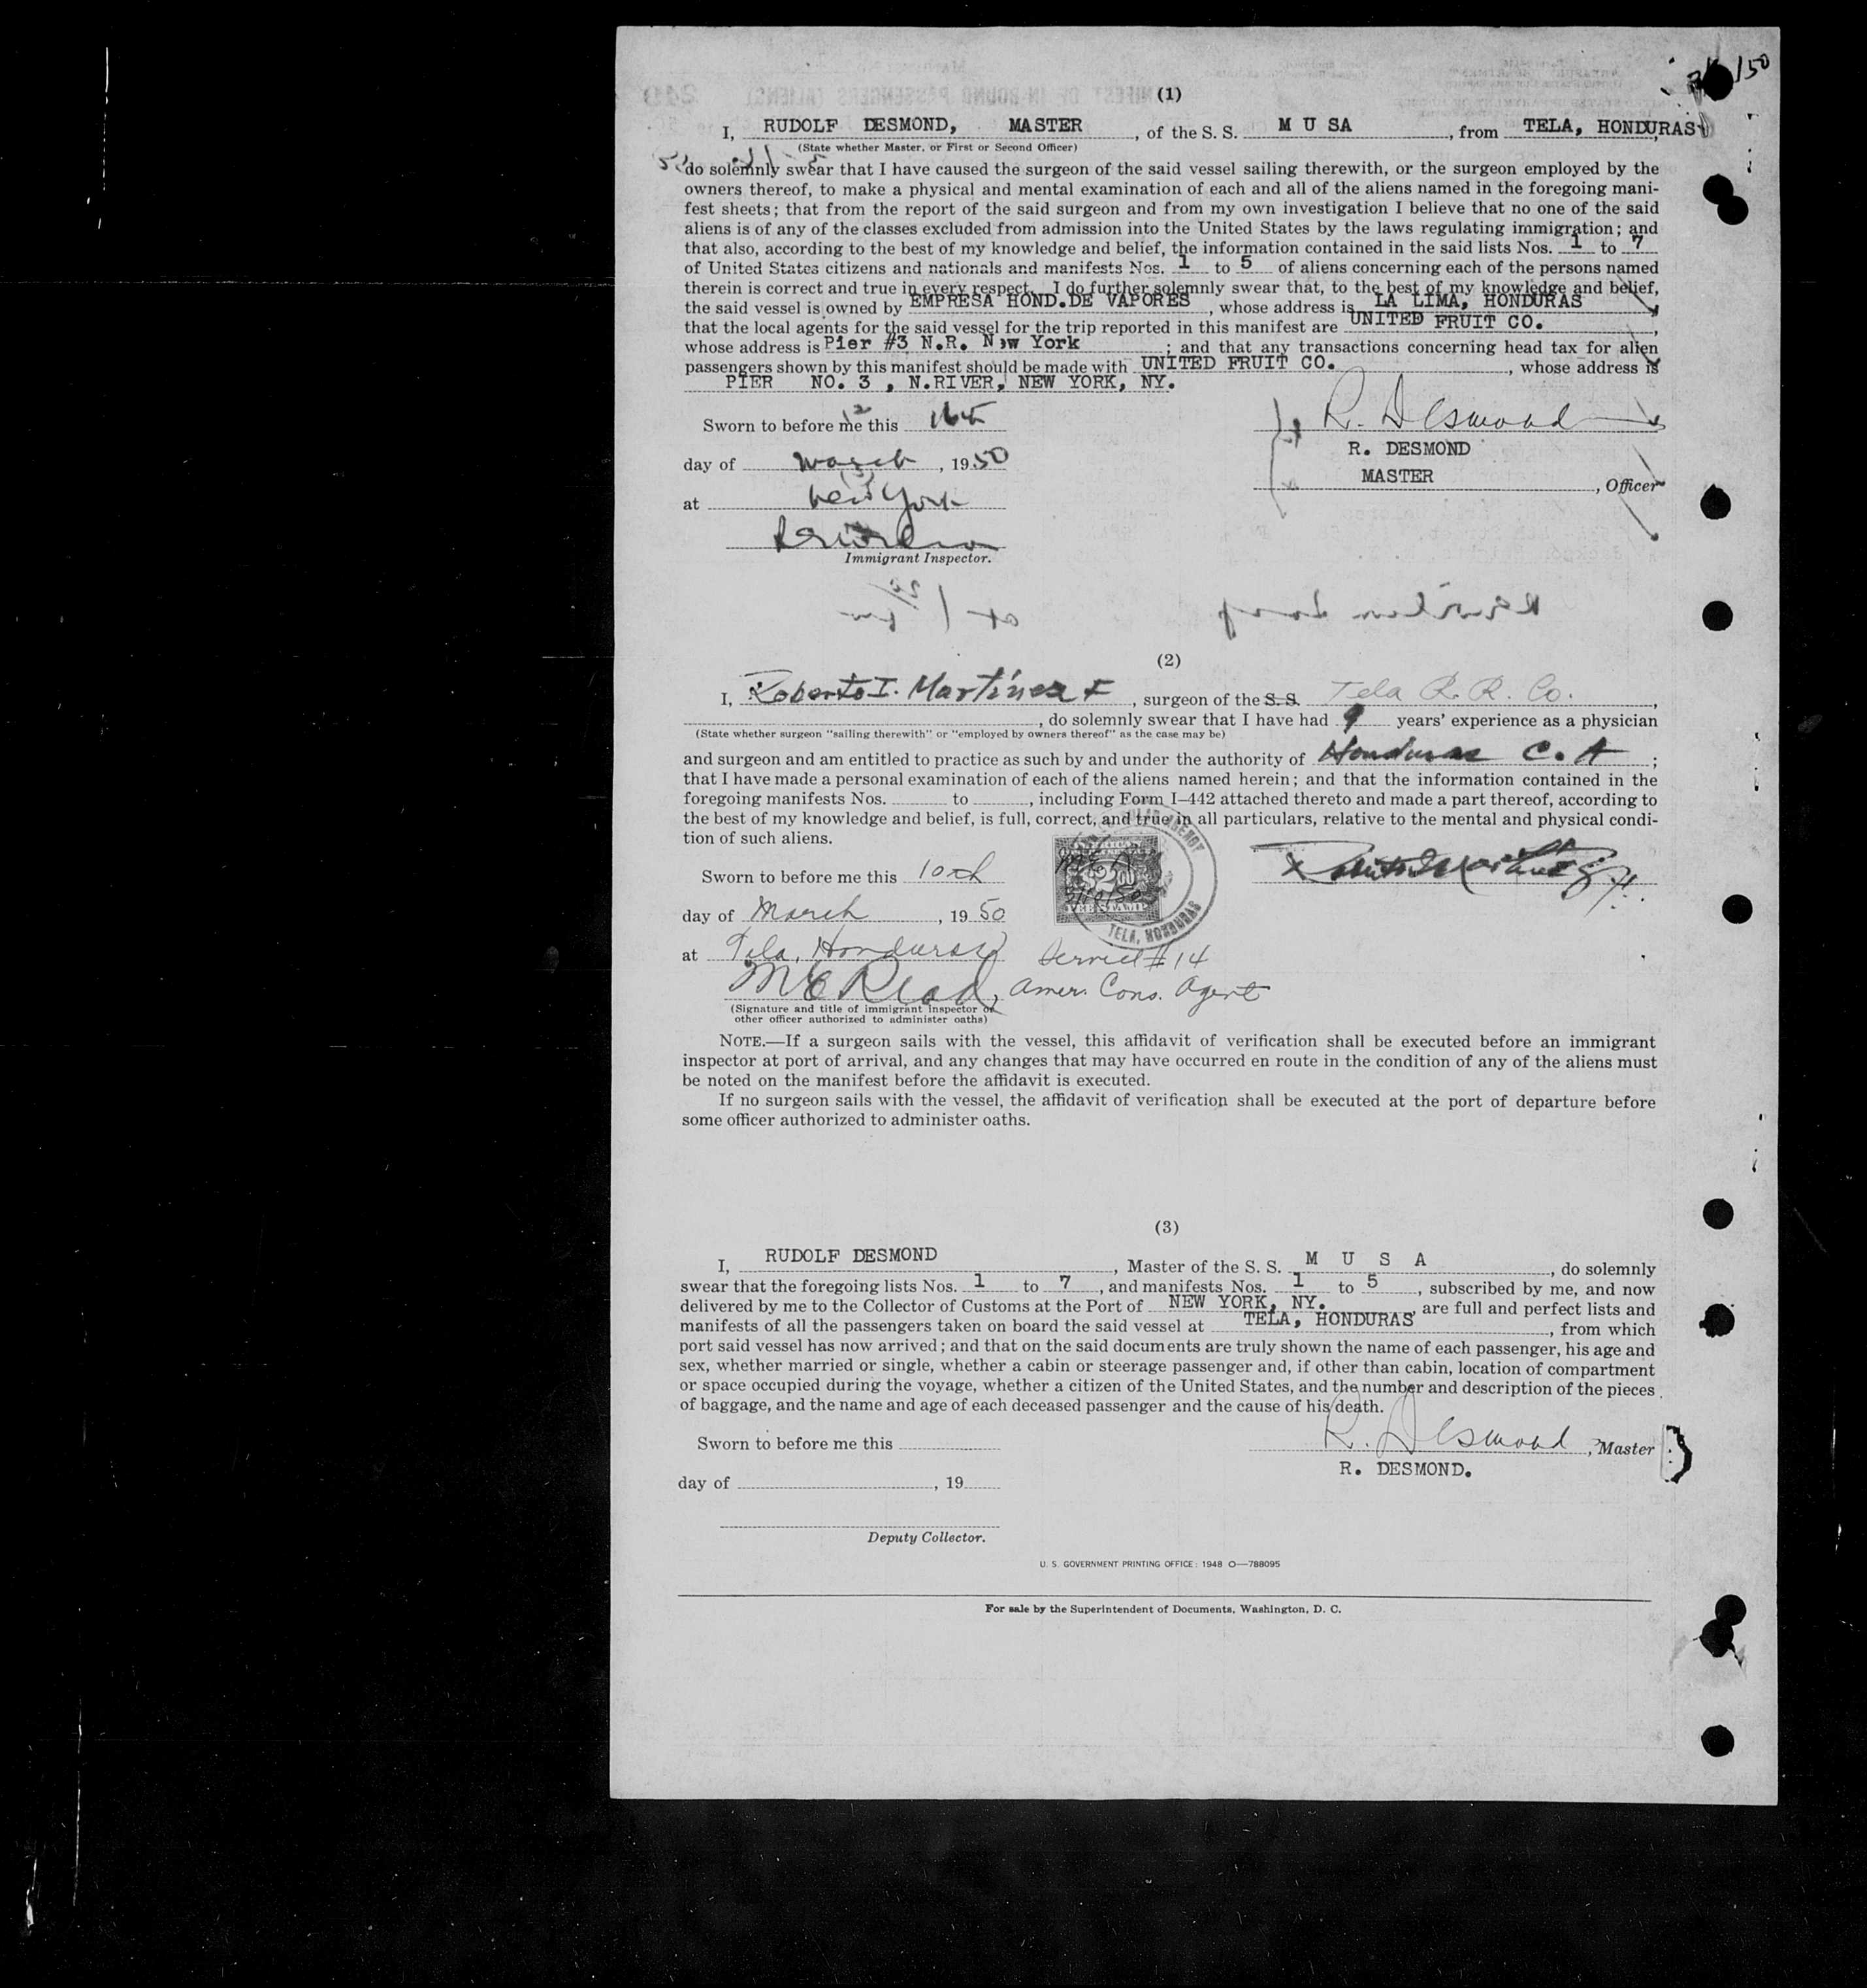 (1)
I, RUDOLF DESMOND, MASTER, of the S. S. M U SA, from TELA, HONDURAS,
(State whether Master, or First or Second Officer)
do solemnly swear that I have caused the surgeon of the said vessel sailing therewith, or the surgeon employed by the
owners thereof, to make a physical and mental examination of each and all of the aliens named in the foregoing mani-
fest sheets; that from the report of the said surgeon and from my own investigation I believe that no one of the said
aliens is of any of the classes excluded from admission into the United States by the laws regulating immigration; and
that also, according to the best of my knowledge and belief, the information contained in the said lists Nos. 1 to 7
of United States citizens and nationals and manifests Nos. 1 to 5 of aliens concerning each of the persons named
therein is correct and true in every respect. I do further solemnly swear that, to the best of my knowledge and belief,
the said vessel is owned by EMPRESA HOND.DE VAPORES, whose address is LA LIMA, HONDURAS,
that the local agents for the said vessel for the trip reported in this manifest are UNITED FRUIT CO.,
whose address is Pier #3 N.R. New York; and that any transactions concerning head tax for alien
passengers shown by this manifest should be made with UNITED FRUIT CO., whose address is
PIER NO. 3 , N.RIVER, NEW YORK, NY.
Sworn to before me this
R. Desmond
R. DESMOND
day of March, 1950
MASTER, Officer
at New York
Immigrant Inspector.
(2)
I, Roberto I. Martínez F, surgeon of the S. S. Tela R. R. Co.,
, do solemnly swear that I have had 9 years' experience as a physician
(State whether surgeon "sailing therewith" or "employed by owners thereof" as the case may be)
and surgeon and am entitled to practice as such by and under the authority of Honduras C. A;
that I have made a personal examination of each of the aliens named herein; and that the information contained in the
foregoing manifests Nos. to , including Form I–442 attached thereto and made a part thereof, according to
the best of my knowledge and belief, is full, correct, and true in all particulars, relative to the mental and physical condi-
tion of such aliens.
AGENCY
TELA, HONDURAS
FEE STAMP
Sworn to before me this 10th
day of March, 1950
at Tela, Honduras Service #14
Amer. Cons. Agent
(Signature and title of immigrant inspector or
other officer authorized to administer oaths)
NOTE.—If a surgeon sails with the vessel, this affidavit of verification shall be executed before an immigrant
inspector at port of arrival, and any changes that may have occurred en route in the condition of any of the aliens must
be noted on the manifest before the affidavit is executed.
If no surgeon sails with the vessel, the affidavit of verification shall be executed at the port of departure before
some officer authorized to administer oaths.
(3)
I, RUDOLF DESMOND, Master of the S. S. M U S A, do solemnly
swear that the foregoing lists Nos. 1 to 7, and manifests Nos. 1 to 5, subscribed by me, and now
delivered by me to the Collector of Customs at the Port of NEW YORK, NY. are full and perfect lists and
manifests of all the passengers taken on board the said vessel at TELA, HONDURAS, from which
port said vessel has now arrived; and that on the said documents are truly shown the name of each passenger, his age and
sex, whether married or single, whether a cabin or steerage passenger and, if other than cabin, location of compartment
or space occupied during the voyage, whether a citizen of the United States, and the number and description of the pieces
of baggage, and the name and age of each deceased passenger and the cause of his death.
Sworn to before me this
R. Desmond, Master
R. DESMOND.
day of , 19
Deputy Collector.
U. S. GOVERNMENT PRINTING OFFICE: 1948 O—788095
For sale by the Superintendent of Documents, Washington, D. C.